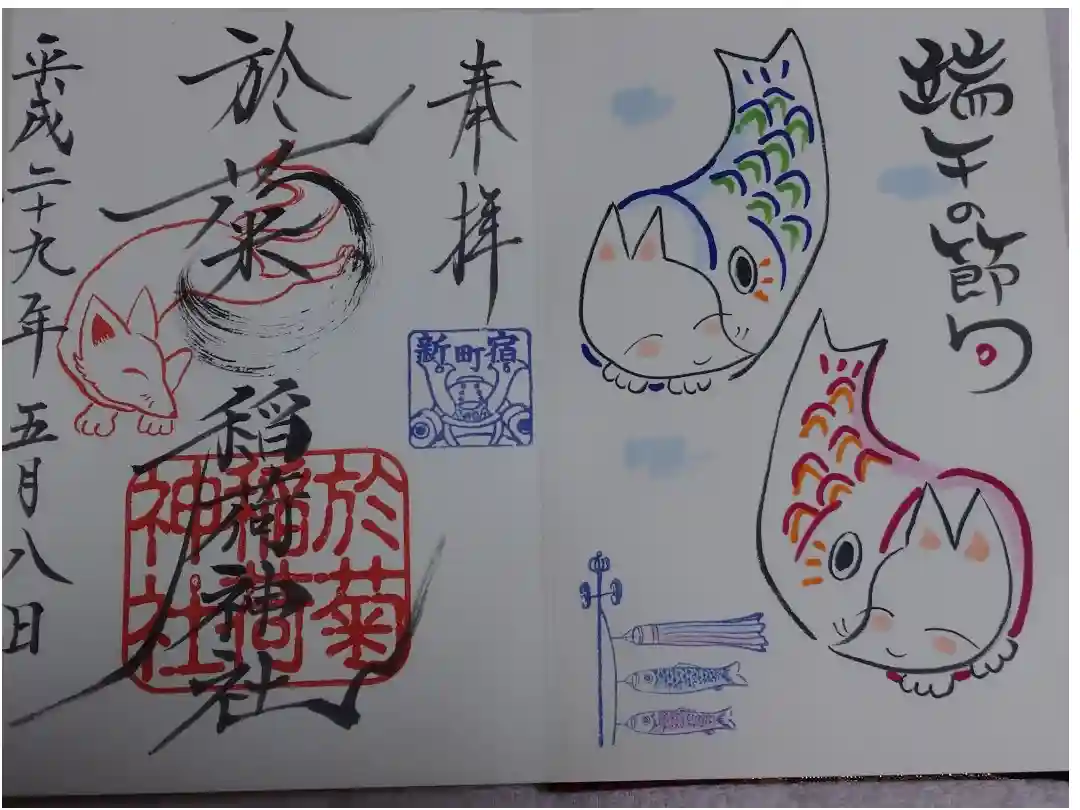 端午の節句
奉拝
新町宿
於菊稲荷神社
於菊
稲荷
神社
平成二十九年 五月八日